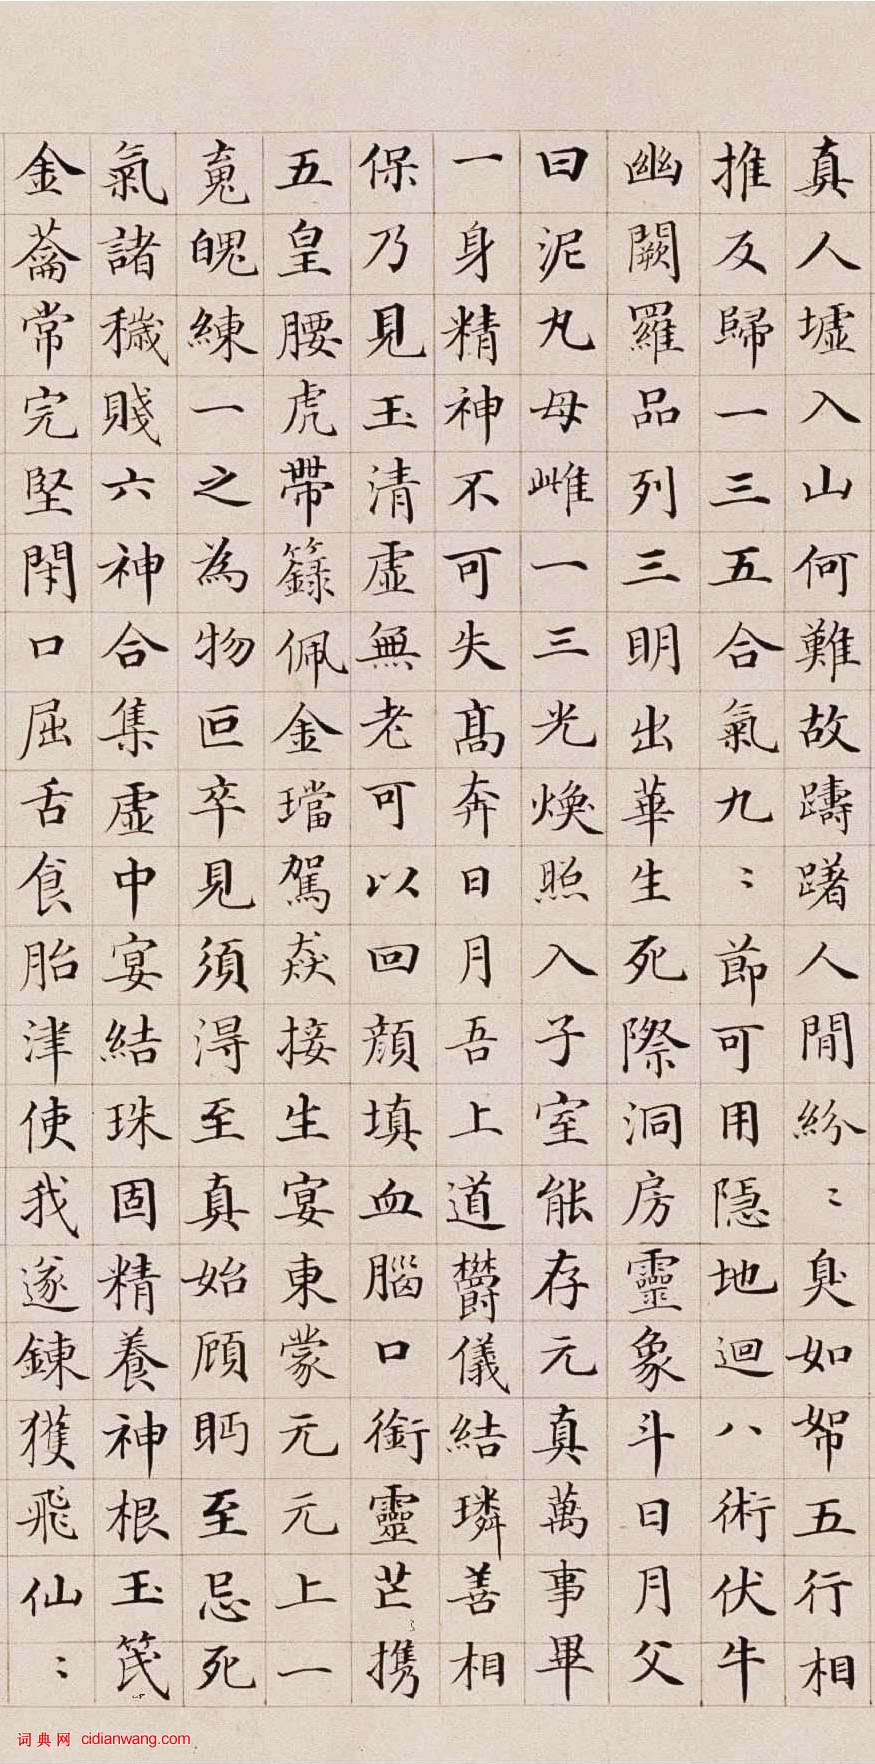 真人墟入山何難故躊躇人間紛〻臭如帤五行相
推反歸一三五合氣九〻節可用隱地迴八術伏牛
幽闕羅品列三明出華生死際洞房靈象斗日月父
曰泥丸母雌一三光煥照入子室能存元真萬事畢
一身精神不可失高奔日月吾上道欝儀結璘善相
保乃見玉清虛無老可以回顏填血腦口銜靈芒携
五皇腰虎帶籙佩金璫駕欻接生宴東蒙元元上一
䰟魄練一之為物叵卒見須得至真始顧眄至忌死
氣諸穢賤六神合集虛中宴結珠固精養神根玉笢
金蘥常完堅閇口屈舌食胎津使我遂鍊獲飛仙〻
词典网 cidianwang.com